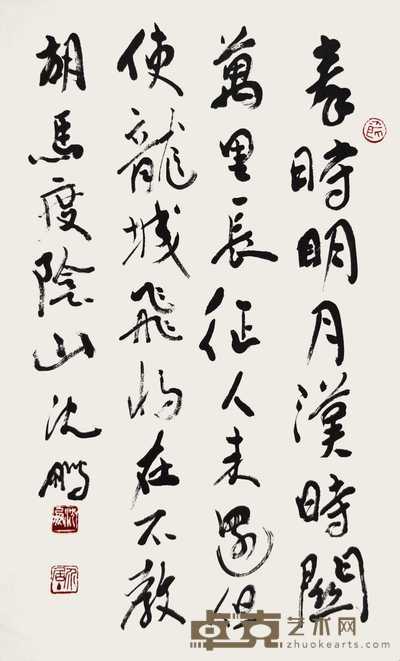 秦時明月漢時關
萬里長征人未還但
使龍城飛將在不教
胡馬度陰山 沈鵬
卓克艺术网
www.zhuokearts.com